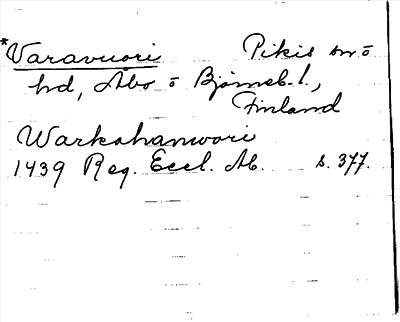 *Varavuori Pikis sn o
hd, Åbo o Björneb. l.,
Finland
Warkahanwori
1439 Reg. Eccl. Ab. s. 377.